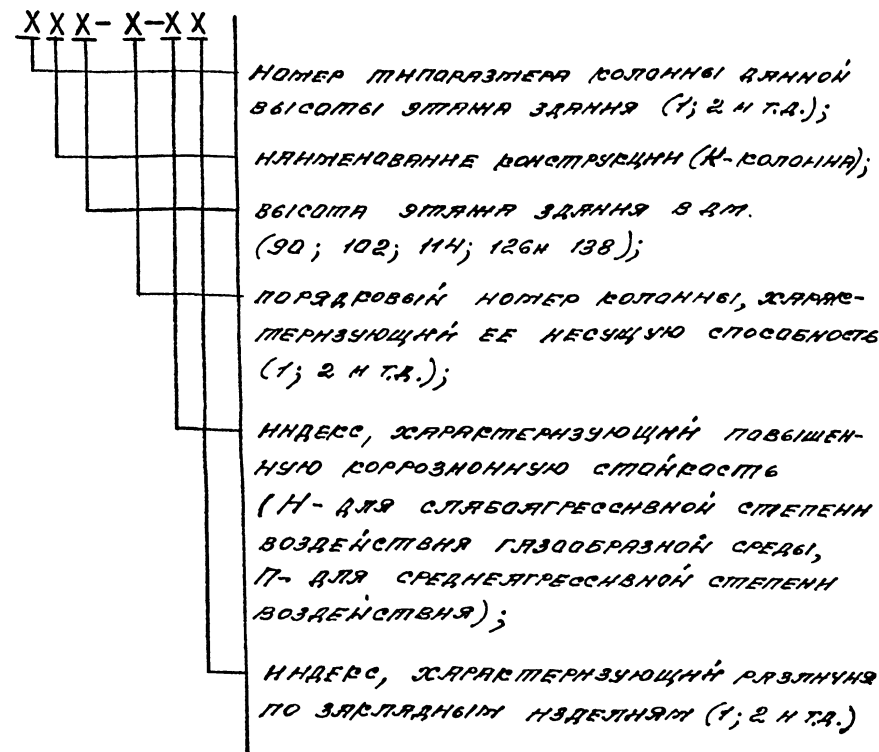 ХХХ- Х-ХХ
Номер типоразмера колонны данной
высоты этажа здания (1; 2 и т.д.);
наименование конструкции (К-колонна);
высота этажа здания в дм.
(90; 102; 114; 126 и 138);
порядковый номер колонны, харак-
теризующий ее несущую способность
(1; 2 и т.д.);
индекс, характеризующий повышен-
ную коррозионную стойкость
(Н- для слабоагрессивной степени
воздействия газообразной среды,
П- для среднеагрессивной степени
воздействия);
индекс, характеризующий различия
по закладным изделиям (1; 2 и т.д.)